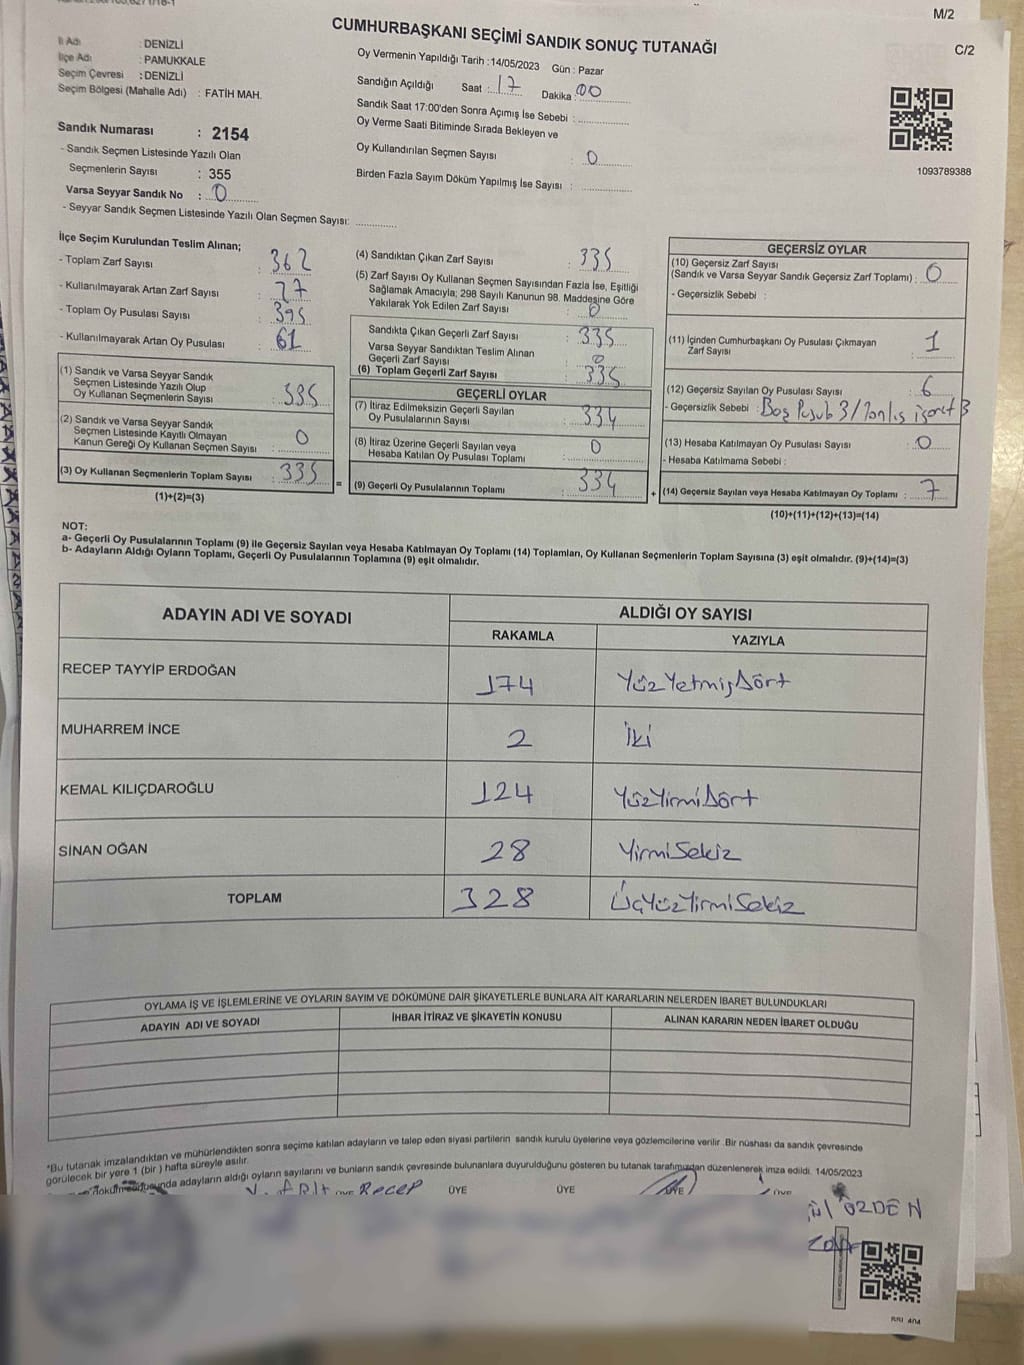 M/2
CUMHURBAŞKANI SEÇİMİ SANDIK SONUÇ TUTANAĞI
C/2
İl Adı : DENİZLİ
İlçe Adı : PAMUKKALE
Seçim Çevresi : DENİZLİ
Seçim Bölgesi (Mahalle Adı) : FATİH MAH.
Oy Vermenin Yapıldığı Tarih : 14/05/2023 Gün : Pazar
Sandığın Açıldığı Saat : 17 Dakika : 00
Sandık Saat 17:00'den Sonra Açımış İse Sebebi :
Oy Verme Saati Bitiminde Sırada Bekleyen ve
Oy Kullandırılan Seçmen Sayısı : 0
Birden Fazla Sayım Döküm Yapılmış İse Sayısı :
1093789388
Sandık Numarası : 2154
- Sandık Seçmen Listesinde Yazılı Olan
Seçmenlerin Sayısı : 355
Varsa Seyyar Sandık No : 0
- Seyyar Sandık Seçmen Listesinde Yazılı Olan Seçmen Sayısı:
İlçe Seçim Kurulundan Teslim Alınan;
- Toplam Zarf Sayısı : 362
- Kullanılmayarak Artan Zarf Sayısı : 27
- Toplam Oy Pusulası Sayısı : 395
- Kullanılmayarak Artan Oy Pusulası : 61
(1) Sandık ve Varsa Seyyar Sandık
Seçmen Listesinde Yazılı Olup
Oy Kullanan Seçmenlerin Sayısı : 335
(2) Sandık ve Varsa Seyyar Sandık
Seçmen Listesinde Kayıtlı Olmayan
Kanun Gereği Oy Kullanan Seçmen Sayısı : 0
(3) Oy Kullanan Seçmenlerin Toplam Sayısı : 335
(1)+(2)=(3)
(4) Sandıktan Çıkan Zarf Sayısı : 335
(5) Zarf Sayısı Oy Kullanan Seçmen Sayısından Fazla İse, Eşitliği
Sağlamak Amacıyla; 298 Sayılı Kanunun 98. Maddesine Göre
Yakılarak Yok Edilen Zarf Sayısı : 0
Sandıkta Çıkan Geçerli Zarf Sayısı : 335
Varsa Seyyar Sandıktan Teslim Alınan
Geçerli Zarf Sayısı : 0
(6) Toplam Geçerli Zarf Sayısı : 335
GEÇERLİ OYLAR
(7) İtiraz Edilmeksizin Geçerli Sayılan
Oy Pusulalarının Sayısı : 334
(8) İtiraz Üzerine Geçerli Sayılan veya
Hesaba Katılan Oy Pusulası Toplamı : 0
= (9) Geçerli Oy Pusulalarının Toplamı : 334
GEÇERSİZ OYLAR
(10) Geçersiz Zarf Sayısı
(Sandık ve Varsa Seyyar Sandık Geçersiz Zarf Toplamı) : 0
- Geçersizlik Sebebi :
(11) İçinden Cumhurbaşkanı Oy Pusulası Çıkmayan
Zarf Sayısı : 1
(12) Geçersiz Sayılan Oy Pusulası Sayısı : 6
- Geçersizlik Sebebi : Boş Pusub 3 / Yanlış işaret 3
(13) Hesaba Katılmayan Oy Pusulası Sayısı : 0
- Hesaba Katılmama Sebebi :
+ (14) Geçersiz Sayılan veya Hesaba Katılmayan Oy Toplamı : 7
(10)+(11)+(12)+(13)=(14)
NOT:
a- Geçerli Oy Pusulalarının Toplamı (9) ile Geçersiz Sayılan veya Hesaba Katılmayan Oy Toplamı (14) Toplamları, Oy Kullanan Seçmenlerin Toplam Sayısına (3) eşit olmalıdır. (9)+(14)=(3)
b- Adayların Aldığı Oyların Toplamı, Geçerli Oy Pusulalarının Toplamına (9) eşit olmalıdır.
ADAYIN ADI VE SOYADI
ALDIĞI OY SAYISI
RAKAMLA YAZIYLA
RECEP TAYYİP ERDOĞAN 174 YüzYetmişDört
MUHARREM İNCE 2 İki
KEMAL KILIÇDAROĞLU 124 YüzYirmiDört
SİNAN OĞAN 28 YirmiSekiz
TOPLAM 328 ÜçYüzYirmiSekiz
OYLAMA İŞ VE İŞLEMLERİNE VE OYLARIN SAYIM VE DÖKÜMÜNE DAİR ŞİKAYETLERLE BUNLARA AİT KARARLARIN NELERDEN İBARET BULUNDUKLARI
ADAYIN ADI VE SOYADI İHBAR İTİRAZ VE ŞİKAYETİN KONUSU ALINAN KARARIN NEDEN İBARET OLDUĞU
*Bu tutanak imzalandıktan ve mühürlendikten sonra seçime katılan adayların ve talep eden siyasi partilerin sandık kurulu üyelerine veya gözlemcilerine verilir. Bir nüshası da sandık çevresinde
görülecek bir yere 1 (bir ) hafta süreyle asılır.
adayların aldığı oyların sayılarını ve bunların sandık çevresinde bulunanlara duyurulduğunu gösteren bu tutanak tarafımızdan düzenlenerek imza edildi. 14/05/2023
Recep ÜYE ÜYE ÜYE
ÖZDEN